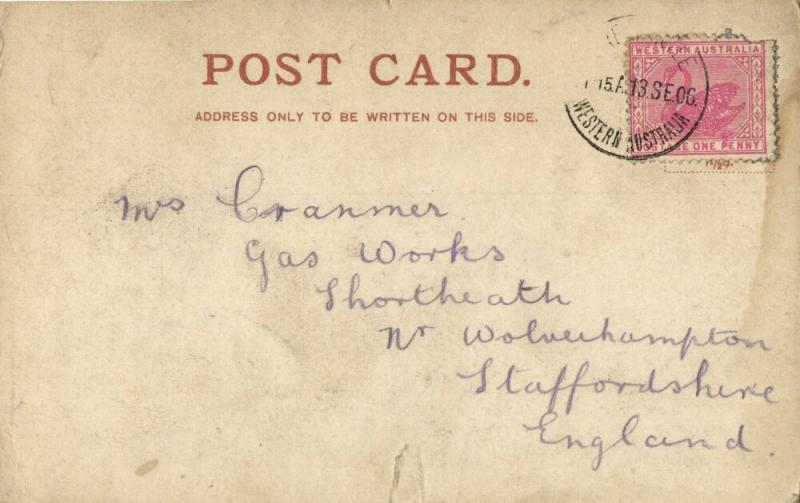 POST CARD.
ADDRESS ONLY TO BE WRITTEN ON THIS SIDE.
WESTERN AUSTRALIA
13.SE.06.
WESTERN AUSTRALIA
POSTAGE ONE PENNY
Mrs Cranmer.
Gas Works
Shortheath
Nr Wolverhampton
Staffordshire
England.